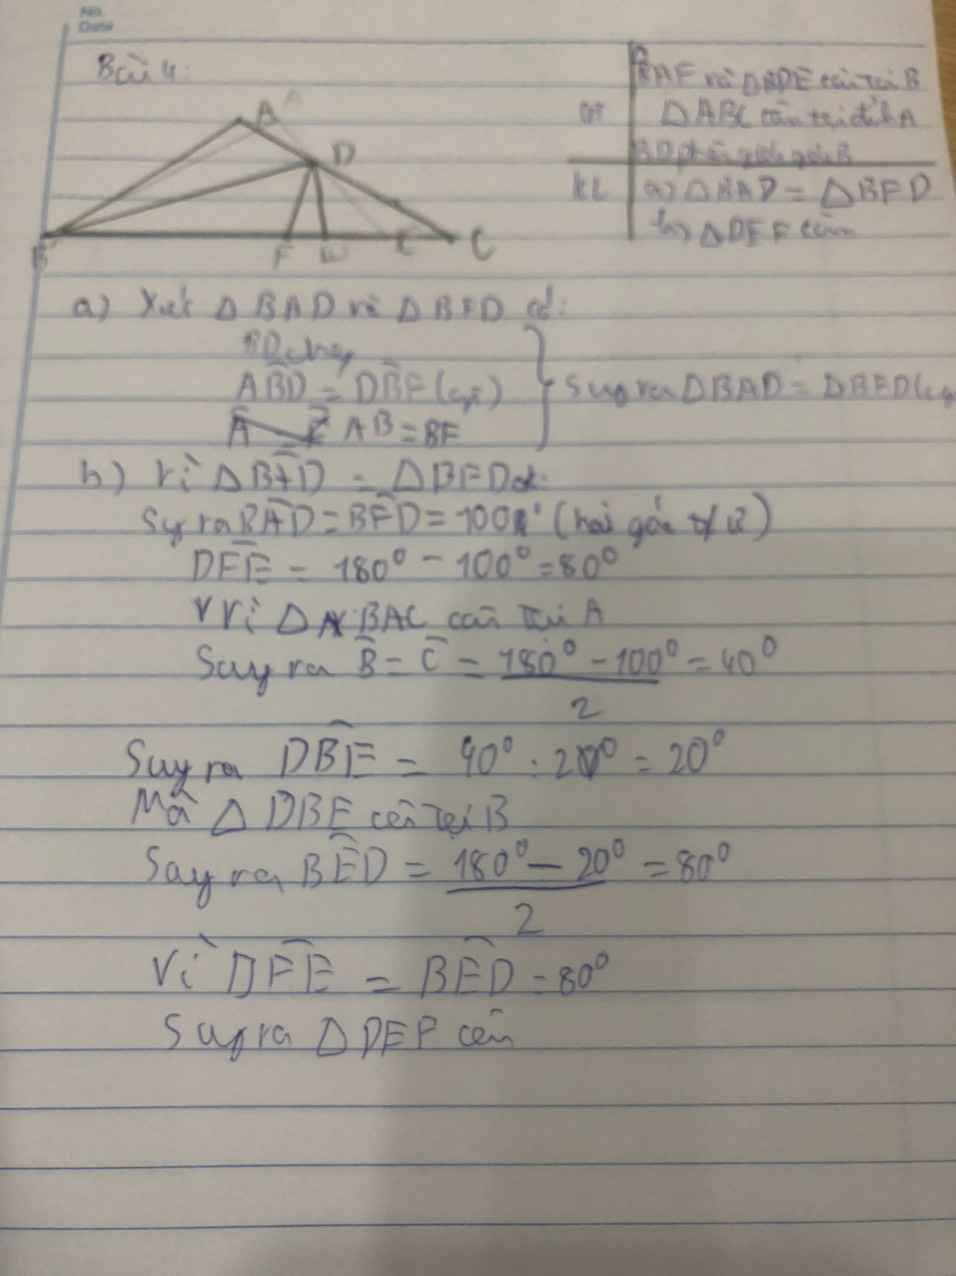 No.
Date
Bài 4:
A
D
B
F
E
C
GT
BAF và ΔBDE cân tại B
ΔABC cân tại đỉnh A
BD phân giác góc B
KL
a) ΔBAD = ΔBFD
b) ΔDEF cân
a) Xét ΔBAD và ΔBFD có:
BD chung
ABD = DBF (cgt)
AB = BF
Suy ra ΔBAD = ΔBFD (cg
b) Vì ΔBAD = ΔBFD
Suy ra BAD = BFD = 100° (hai góc t/ư)
DFE = 180° - 100° = 80°
Vì Δ BAC cân tại A
Suy ra B = C = 180° - 100° = 40°
2
Suy ra DBE = 40° : 2 = 20°
Mà Δ DBE cân tại B
Suy ra BED = 180° - 20° = 80°
2
Vì DFE = BED = 80°
Suy ra Δ DEF cân